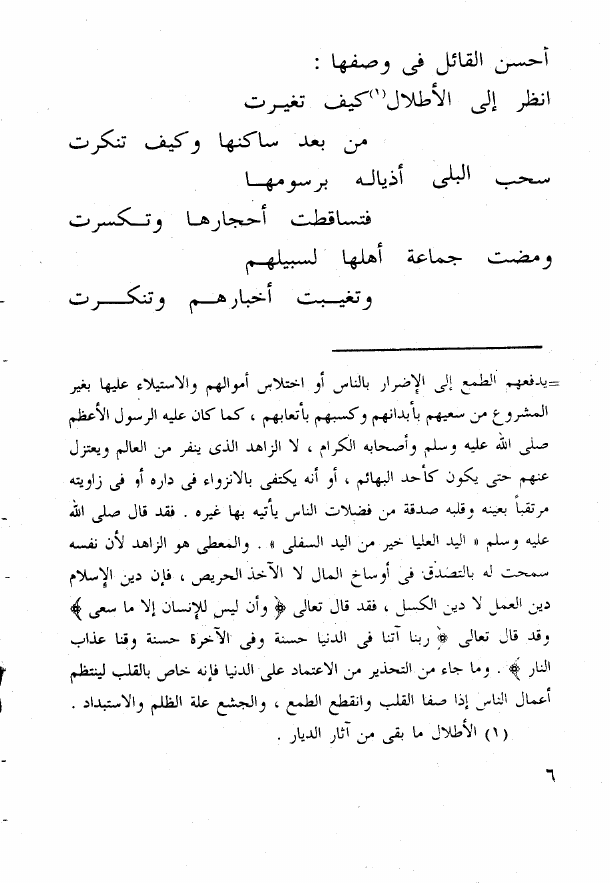 أحسن القائل فى وصفها :
انظر إلى الأطلال(١) كيف تغيرت
من بعد ساكنها وكيف تنكرت
سحب البلى أذياله برسومها
فتساقطت أحجارها وتكسرت
ومضت جماعة أهلها لسبيلهم
وتغيبت أخبارهم وتنكرت
=يدفعهم الطمع إلى الإضرار بالناس أو اختلاس أموالهم والاستيلاء عليها بغير
المشروع من سعيهم بأبدانهم وكسبهم بأتعابهم ، كما كان عليه الرسول الأعظم
صلى الله عليه وسلم وأصحابه الكرام ، لا الزاهد الذى ينفر من العالم ويعتزل
عنهم حتى يكون كأحد البهائم ، أو أنه يكتفى بالانزواء فى داره أو فى زاويته
مرتقباً بعينه وقلبه صدقة من فضلات الناس يأتيه بها غيره . فقد قال صلى الله
عليه وسلم « اليد العليا خير من اليد السفلى » . والمعطى هو الزاهد لأن نفسه
سمحت له بالتصدق فى أوساخ المال لا الآخذ الحريص ، فإن دين الإسلام
دين العمل لا دين الكسل ، فقد قال تعالى ﴿ وأن ليس للإنسان إلا ما سعى ﴾
وقد قال تعالى ﴿ ربنا آتنا فى الدنيا حسنة وفى الآخرة حسنة وقنا عذاب
النار ﴾ . وما جاء من التحذير من الاعتماد على الدنيا فإنه خاص بالقلب لينتظم
أعمال الناس إذا صفا القلب وانقطع الطمع ، والجشع علة الظلم والاستبداد .
(١) الأطلال ما بقى من آثار الديار .
٦